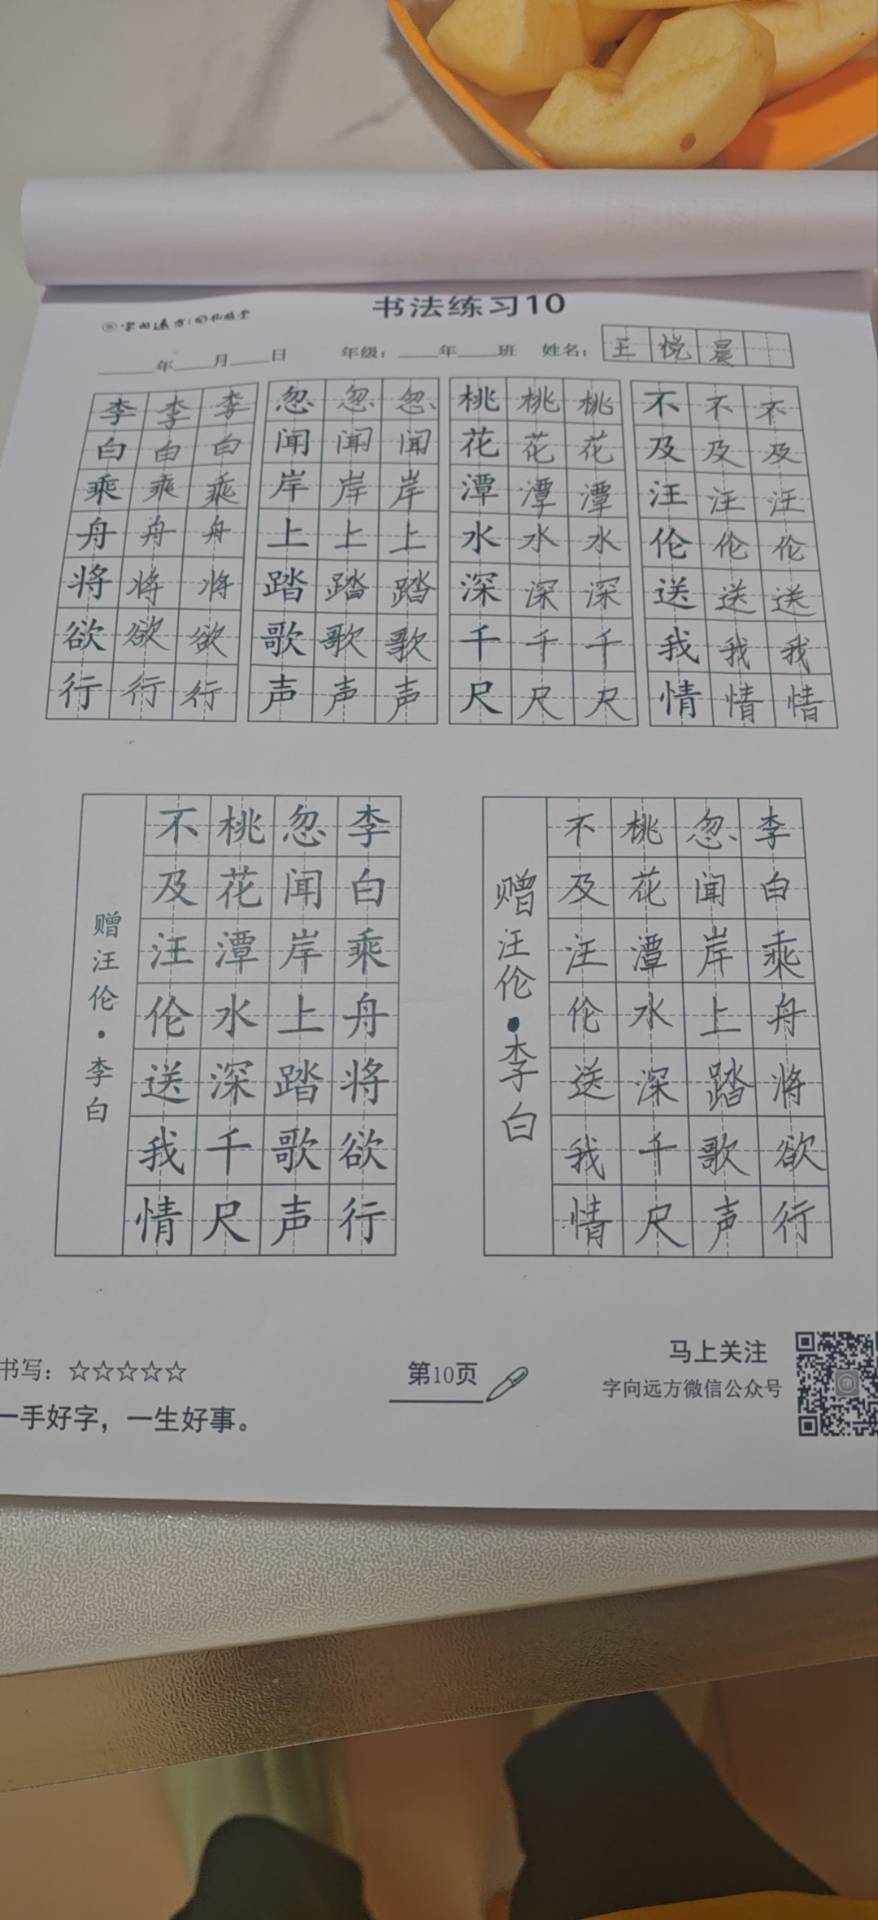 书法练习10
年 月 日 年级： 年 班 姓名： 王悦晨
李李李 忽忽忽 桃桃桃 不不不
白白白 闻闻闻 花花花 及及及
乘乘乘 岸岸岸 潭潭潭 汪汪汪
舟舟舟 上上上 水水水 伦伦伦
将将将 踏踏踏 深深深 送送送
欲欲欲 歌歌歌 千千千 我我我
行行行 声声声 尺尺尺 情情情
李白乘舟将欲行
忽闻岸上踏歌声
桃花潭水深千尺
不及汪伦送我情
赠汪伦·李白
李白乘舟将欲行
忽闻岸上踏歌声
桃花潭水深千尺
不及汪伦送我情
赠汪伦·李白
书写：☆☆☆☆☆
一手好字，一生好事。
第10页
马上关注
字向远方微信公众号